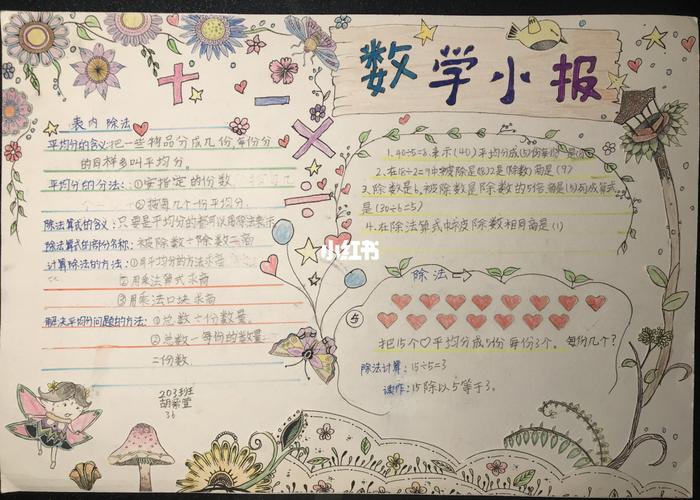 数学小报
表内除法
平均分的含义:把一些物品分成几份,每份分
的同样多叫平均分。
平均分的分法:①按指定的份数
②按每几个一份平均分.
除法算式的含义:只要是平均分的都可以用除法表示
除法算式的部分名称:被除数÷除数=商
计算除法的方法:①用平均分的方法求商
②用乘法算式求商
③用乘法口诀求商
解决平均分问题的方法:①总数÷份数量.
②总数÷每份的数量
=份数.
203班
胡
36
1.40÷5=8.表示(40)平均分成(5)份每份是(8)
2.在18÷2=9中被除是(18)2是(除数)商是(9)
3.除数是6,被除数是除数的5倍,商是(5)写成算式
是(30÷6=5)
4.在除法算式中被除数相同商是(1)
除法
把15个♡平均分成5份每份3个. 每份几个?
除法计算:15÷5=3
读作:15除以5等于3。
小红书